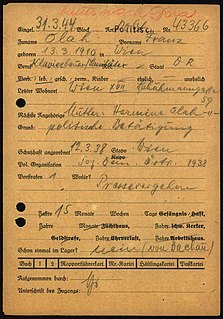 Eingel. 31.3.44 Polit. Nr. 43366
Zuname Olah Franz
geboren 13.3.1910 in Wien
Beruf Klavierbauer Staat D.R.
Verh. led. gesch. verw. Kinder
Letzter Wohnort Wien XVII
59
Nächste Angehörige Mutter: Hermine Olah -"-
Grund: politische Betätigung
Schutzhaft angeordnet 12.3.38 Stapo Kripo Wien
Pol. Organisation Soz. Dem. 1938
Vorstrafen 1 wegen?
Pressevergehen
Jahre 15 Monate Wochen Tage Gefängnis-Haft,
Jahre Monate Zuchthaus, Jahre schw. Kerker,
Geldstrafe, Jahre Ehrverlust, Jahre Arbeitshaus.
Schon einmal im Lager? nein (von Dachau)
Buch 1 2 Rapportführerkart. Nr.-Kartei Häftlingskartei Postkartei
Aufgenommen durch:
Unterschrift des Zugangs: